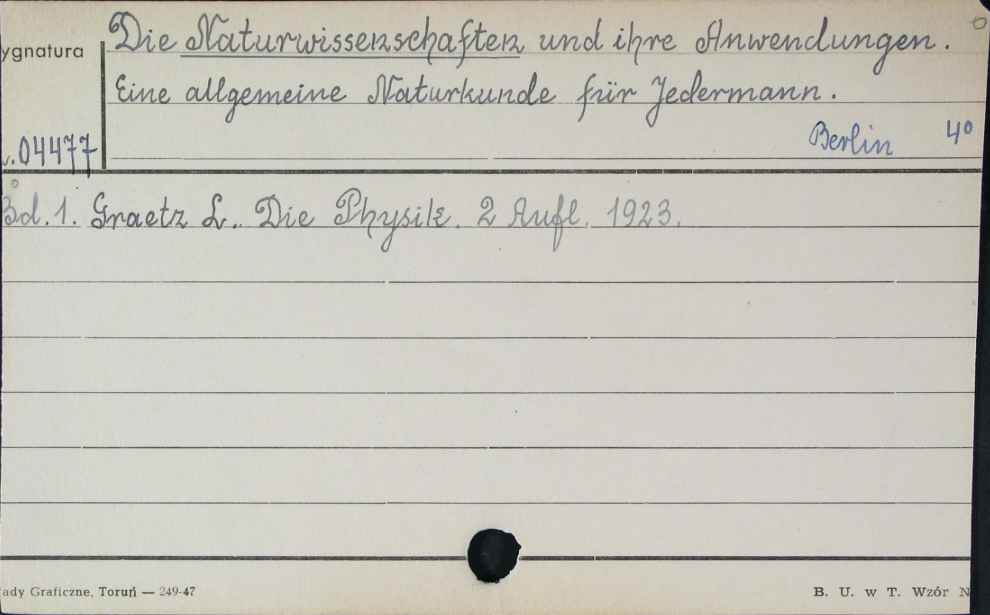 Die Naturwissenschaften und ihre Anwendungen.
ygnatura
Eine allgemeine Naturkunde für Jedermann.
04477
Berlin 4°
Bd. 1. Graetz L., Die Physik. 2 Aufl. 1923.
ady Graficzne, Toruń — 249-47
B. U. w T. Wzór N